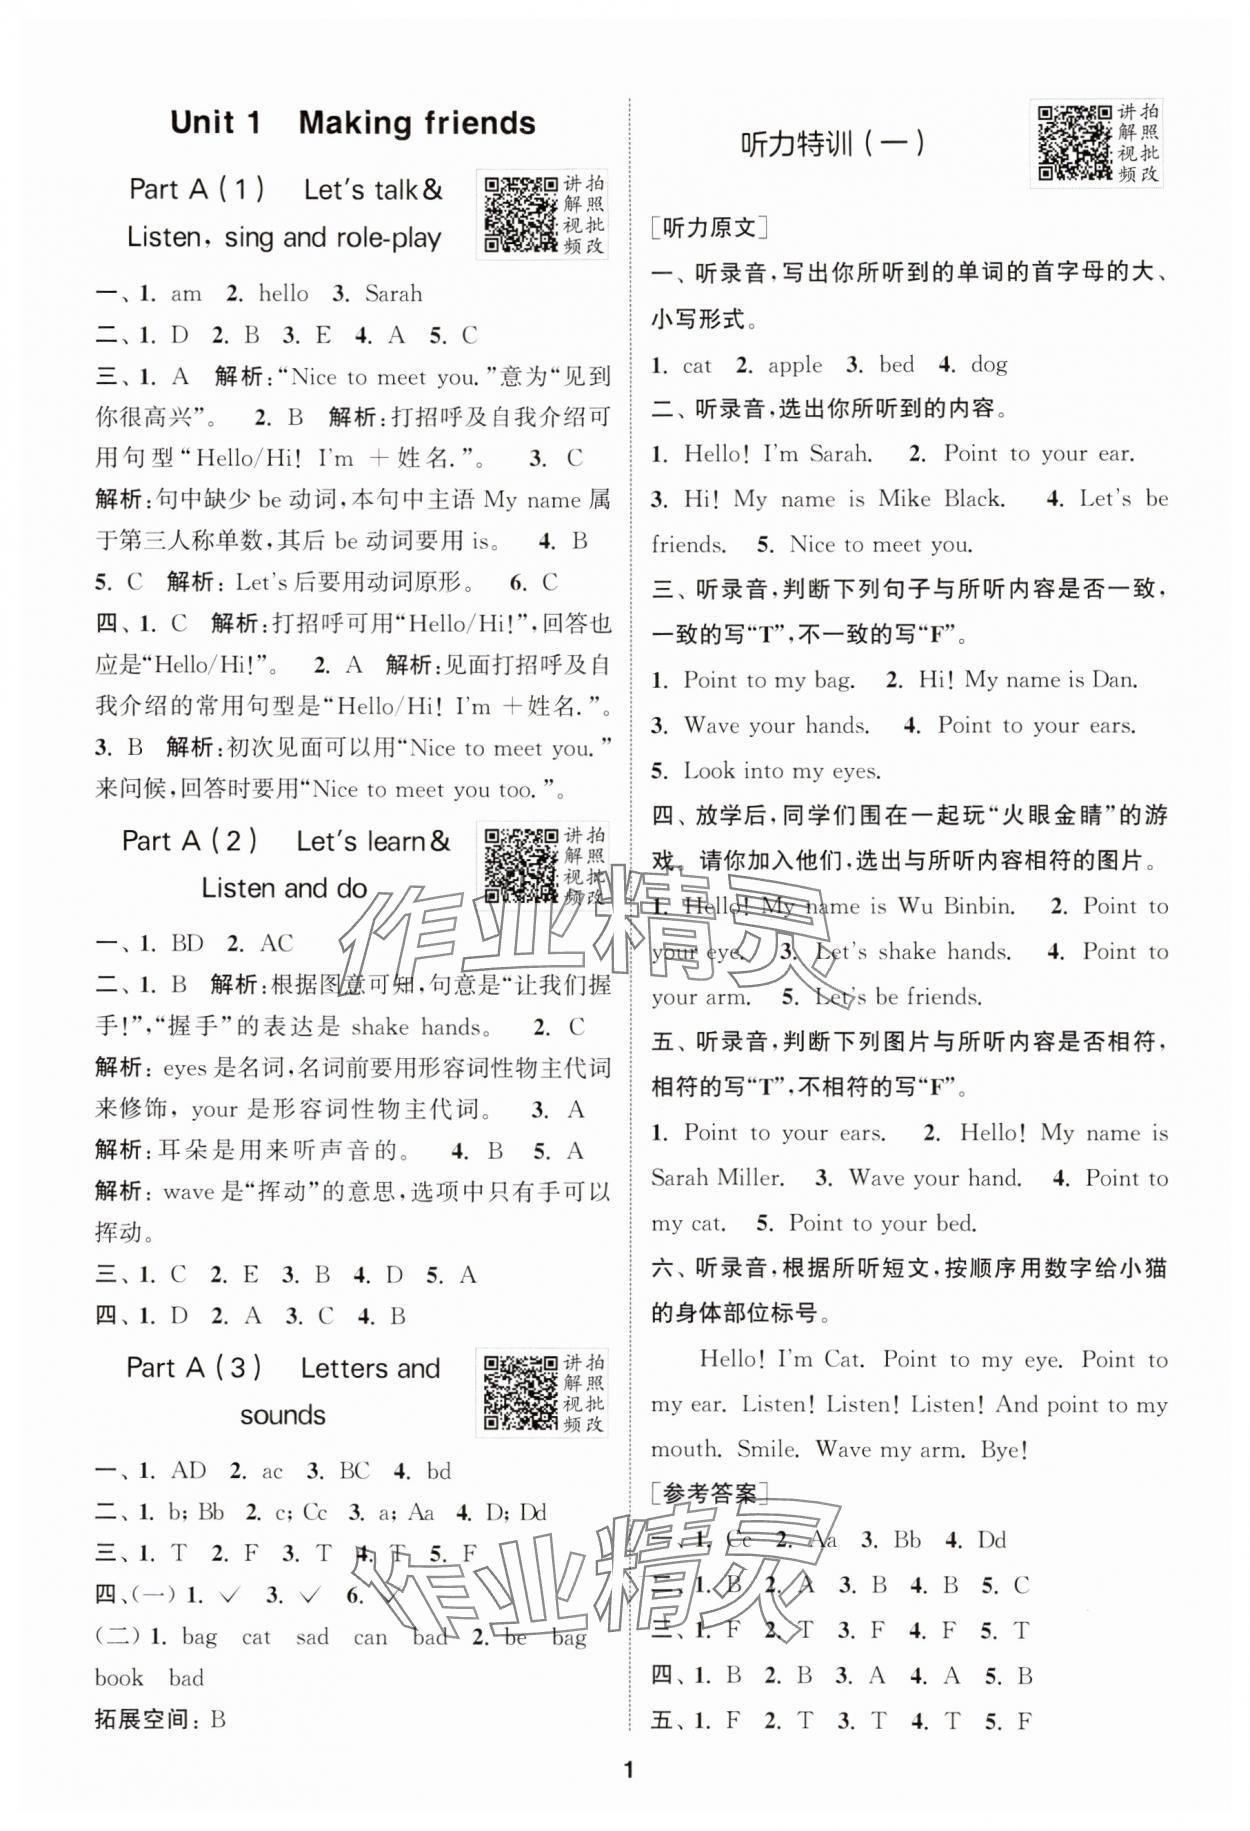 Unit 1 Making friends
Part A(1) Let's talk&
Listen, sing and role-play
讲拍
解照
视批
频改
一、1. am 2. hello 3. Sarah
二、1. D 2. B 3. E 4. A 5. C
三、1. A 解析:“Nice to meet you.”意为“见到
你很高兴”。 2. B 解析:打招呼及自我介绍可
用句型“Hello/Hi! I'm +姓名.”。 3. C
解析:句中缺少 be 动词,本句中主语 My name 属
于第三人称单数,其后 be 动词要用 is。 4. B
5. C 解析: Let's 后要用动词原形。 6. C
四、1. C 解析:打招呼可用“Hello/Hi!”,回答也
应是“Hello/Hi!”。 2. A 解析:见面打招呼及自
我介绍的常用句型是“Hello/Hi! I'm +姓名.”。
3. B 解析:初次见面可以用“Nice to meet you.”
来问候,回答时要用“Nice to meet you too.”。
Part A(2) Let's learn&
Listen and do
讲拍
解照
视批
频改
一、1. BD 2. AC
二、1. B 解析:根据图意可知,句意是“让我们握
手!”,“握手”的表达是 shake hands。 2. C
解析: eyes 是名词,名词前要用形容词性物主代词
来修饰, your 是形容词性物主代词。 3. A
解析:耳朵是用来听声音的。 4. B 5. A
解析: wave 是“挥动”的意思,选项中只有手可以
挥动。
三、1. C 2. E 3. B 4. D 5. A
四、1. D 2. A 3. C 4. B
Part A(3) Letters and
sounds
讲拍
解照
视批
频改
一、1. AD 2. ac 3. BC 4. bd
二、1. b; Bb 2. c; Cc 3. a; Aa 4. D; Dd
三、1. T 2. F 3. T 4. T 5. F
四、(一) 1. ✓ 3. ✓ 6. ✓
(二) 1. bag cat sad can bad 2. be bag
book bad
拓展空间: B
听力特训(一)
讲拍
解照
视批
频改
[听力原文]
一、听录音,写出你所听到的单词的首字母的大、
小写形式。
1. cat 2. apple 3. bed 4. dog
二、听录音,选出你所听到的内容。
1. Hello! I'm Sarah. 2. Point to your ear.
3. Hi! My name is Mike Black. 4. Let's be
friends. 5. Nice to meet you.
三、听录音,判断下列句子与所听内容是否一致,
一致的写“T”,不一致的写“F”。
1. Point to my bag. 2. Hi! My name is Dan.
3. Wave your hands. 4. Point to your ears.
5. Look into my eyes.
四、放学后,同学们围在一起玩“火眼金睛”的游
戏。请你加入他们,选出与所听内容相符的图片。
1. Hello! My name is Wu Binbin. 2. Point to
your eye. 3. Let's shake hands. 4. Point to
your arm. 5. Let's be friends.
五、听录音,判断下列图片与所听内容是否相符,
相符的写“T”,不相符的写“F”。
1. Point to your ears. 2. Hello! My name is
Sarah Miller. 3. Wave your hand. 4. Point to
my cat. 5. Point to your bed.
六、听录音,根据所听短文,按顺序用数字给小猫
的身体部位标号。
Hello! I'm Cat. Point to my eye. Point to
my ear. Listen! Listen! Listen! And point to my
mouth. Smile. Wave my arm. Bye!
[参考答案]
一、1. Cc 2. Aa 3. Bb 4. Dd
二、1. B 2. A 3. B 4. B 5. C
三、1. F 2. T 3. F 4. F 5. T
四、1. B 2. B 3. A 4. A 5. B
五、1. F 2. T 3. T 4. T 5. F
作业精灵
作业精灵
1